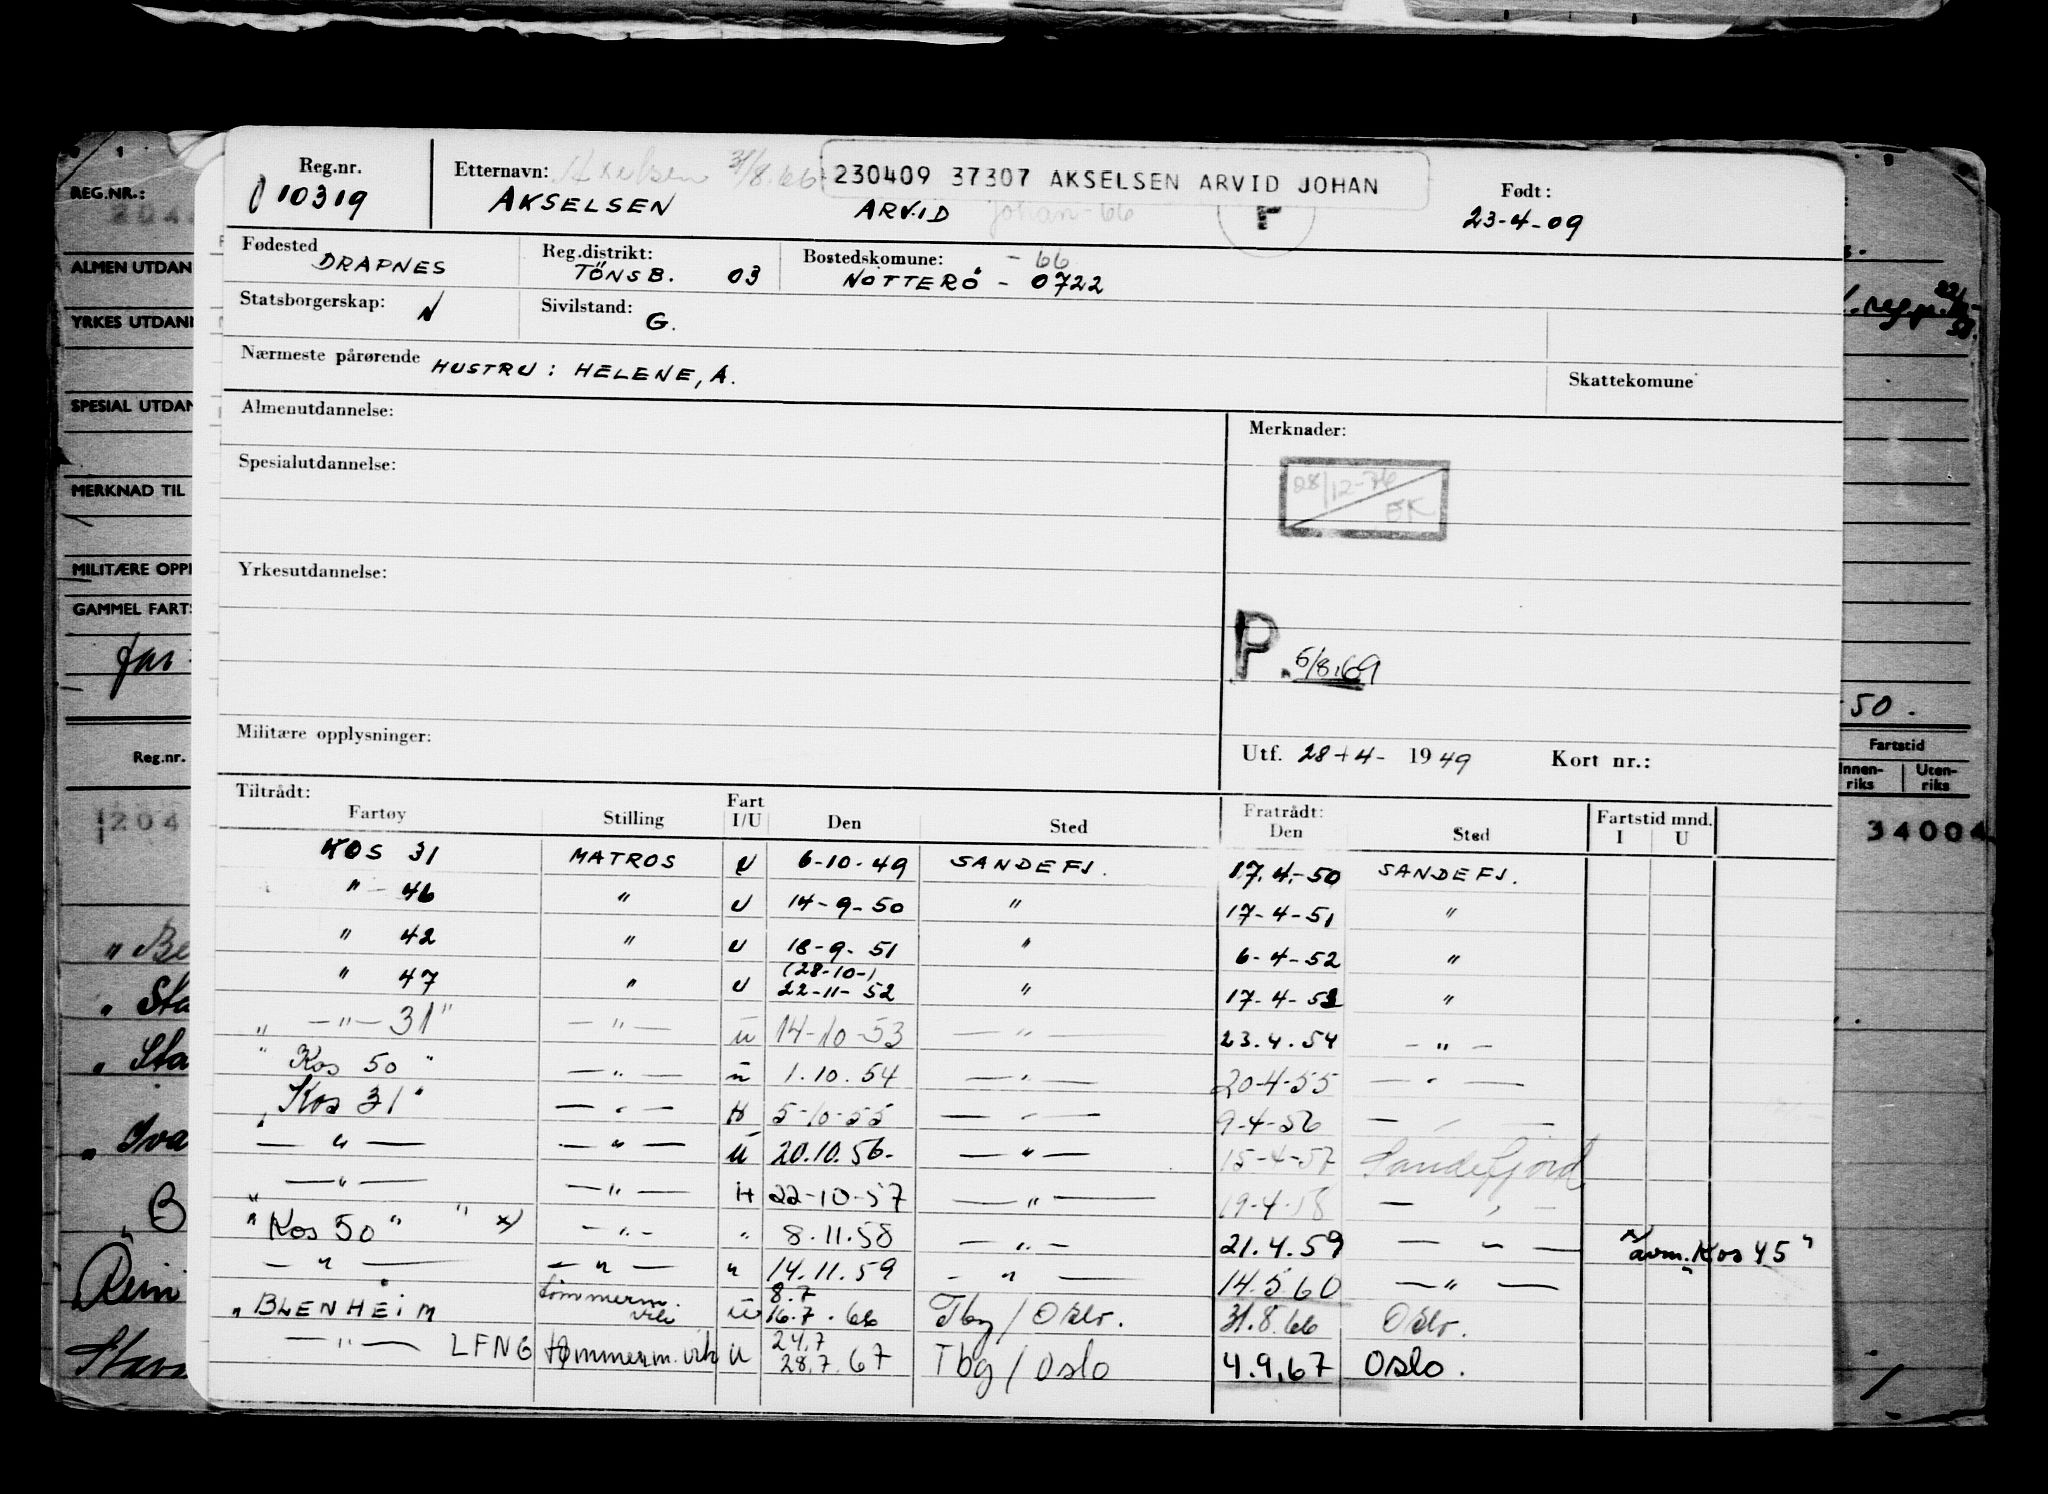 Reg.nr. Etternavn: Axelsen 31/8.66 230409 37307 AKSELSEN ARVID JOHAN Født:
10319 AKSELSEN ARVID Johan-66 F 23-4-09
Fødested DRAPNES Reg.distrikt: TÖNSB. 03 Bostedskomune: -66 NÖTTERÖ - 0722
Statsborgerskap: N Sivilstand: G.
Nærmeste pårørende HUSTRU: HELENE, A. Skattekomune
Almenutdannelse: Merknader:
Spesialutdannelse: 28/12-76 EK
Yrkesutdannelse:
P. 5/8.69
Militære opplysninger: Utf. 28-4- 1949 Kort nr.:
Tiltrådt: Fratrådt: Fartstid mnd.
Fartøy Stilling Fart I/U Den Sted Den Sted I U
KOS 31 MATROS U 6-10-49 SANDEFJ. 17.4.-50 SANDEFJ.
" - 46 " U 14-9-50 " 17-4-51 "
" 42 " U 18-9-51 " 6-4-52 "
" 47 " U (28-10-) 22-11-52 " 17-4-53 "
" -"- 31" -"- u 14-10-53 -"- 23.4.54 -"-
" Kos 50 " -"- u 1.10.54 -"- 20-4-55 -"-
" Kos 31" -"- U 5-10-55 -"- 9-4-56 -"-
-"- -"- U 20.10.56- -"- 15-4-57 Sandefjord
-"- -"- U 22-10-57 -"- 19-4-58 -"-
" Kos 50 " " x) -"- " 8.11.58 -"- 21.4.59 -"- x) avm. "Kos 45"
-"- -"- " 14.11.59 -"- 14.5.60 -"-
" BLENHEIM tömmerm. vik U 8.7 16.7.66 Tbg/Oslo. 31.8.66 Oslo.
-"- LFNG tømmerm. vik U 24.7 28.7.67 Tbg/Oslo 4.9.67 Oslo.
REG.NR.:
204
ALMEN UTDAN
YRKES UTDAN
SPESIAL UTDAN
MERKNAD TIL
MILITÆRE OPPL
GAMMEL FARTS
Reg.nr.
204
50.
Fartstid
Innen-riks Uten-riks
34004